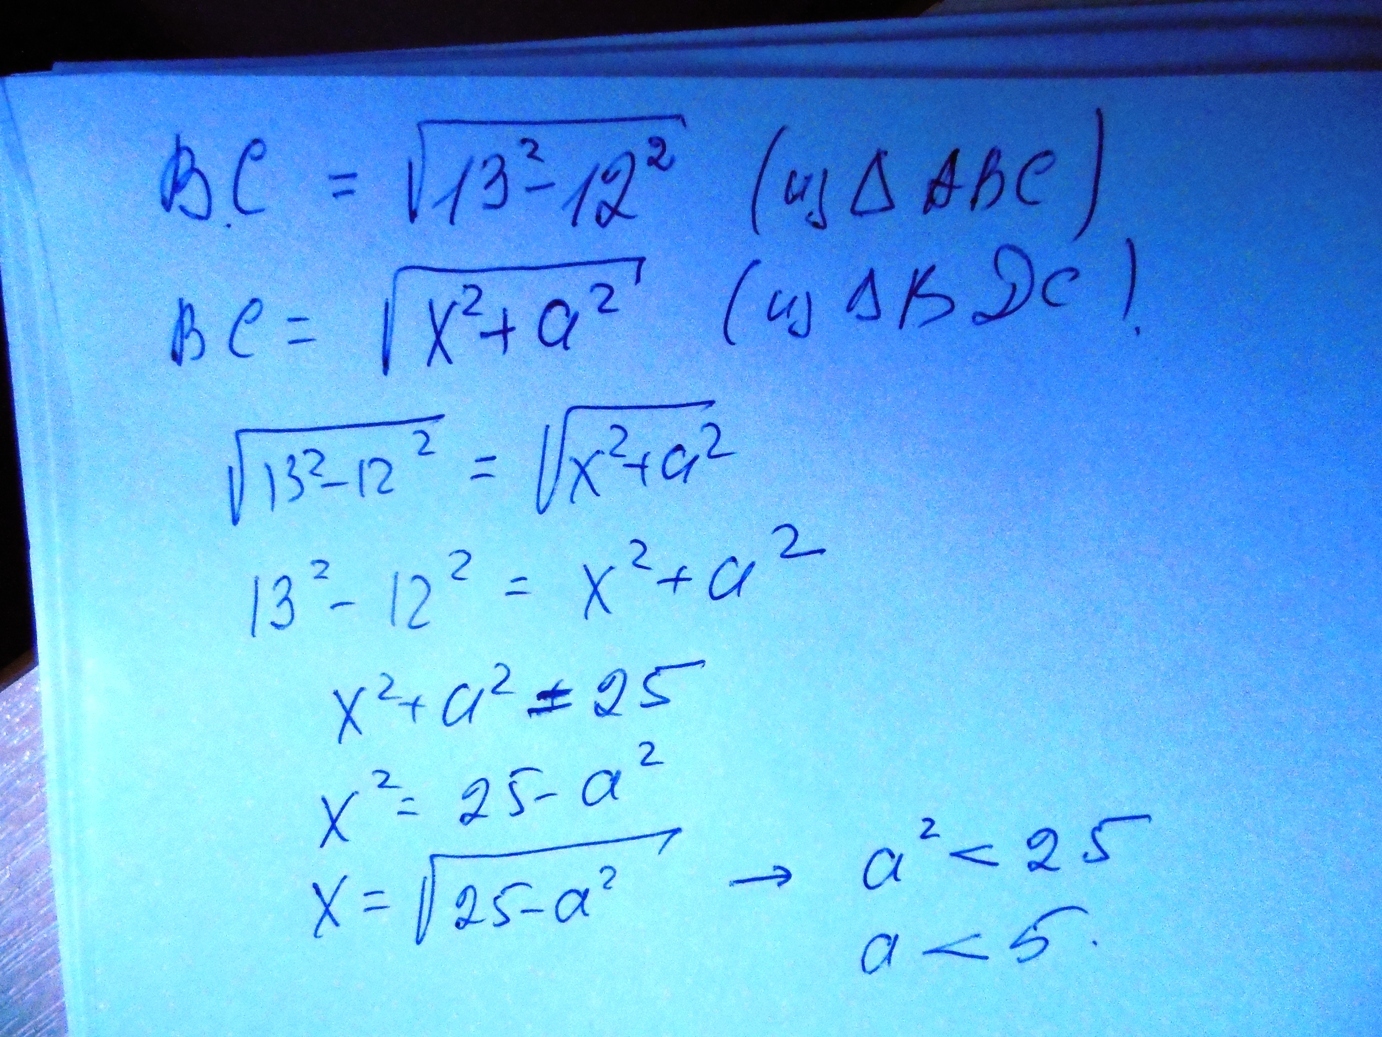 BC = √13² - 12² (из Δ ABC)
BC = √x² + a² (из Δ BDC)
√13² - 12² = √x² + a²
13² - 12² = x² + a²
x² + a² = 25
x² = 25 - a²
x = √25 - a² → a² < 25
a < 5.